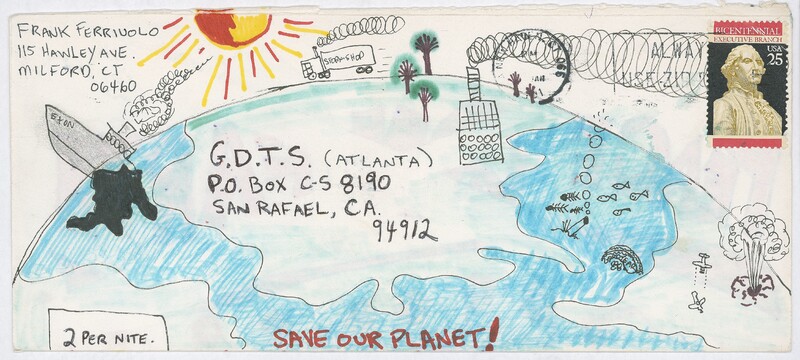 FRANK FERRIUOLO
115 HAWLEY AVE.
MILFORD, CT
06460
STOP & SHOP
BICENTENNIAL
EXECUTIVE BRANCH
USA
25
EXXON
G.D.T.S. (ATLANTA)
P.O. BOX C-S 8190
SAN RAFAEL, CA.
94912
2 PER NITE.
SAVE OUR PLANET!